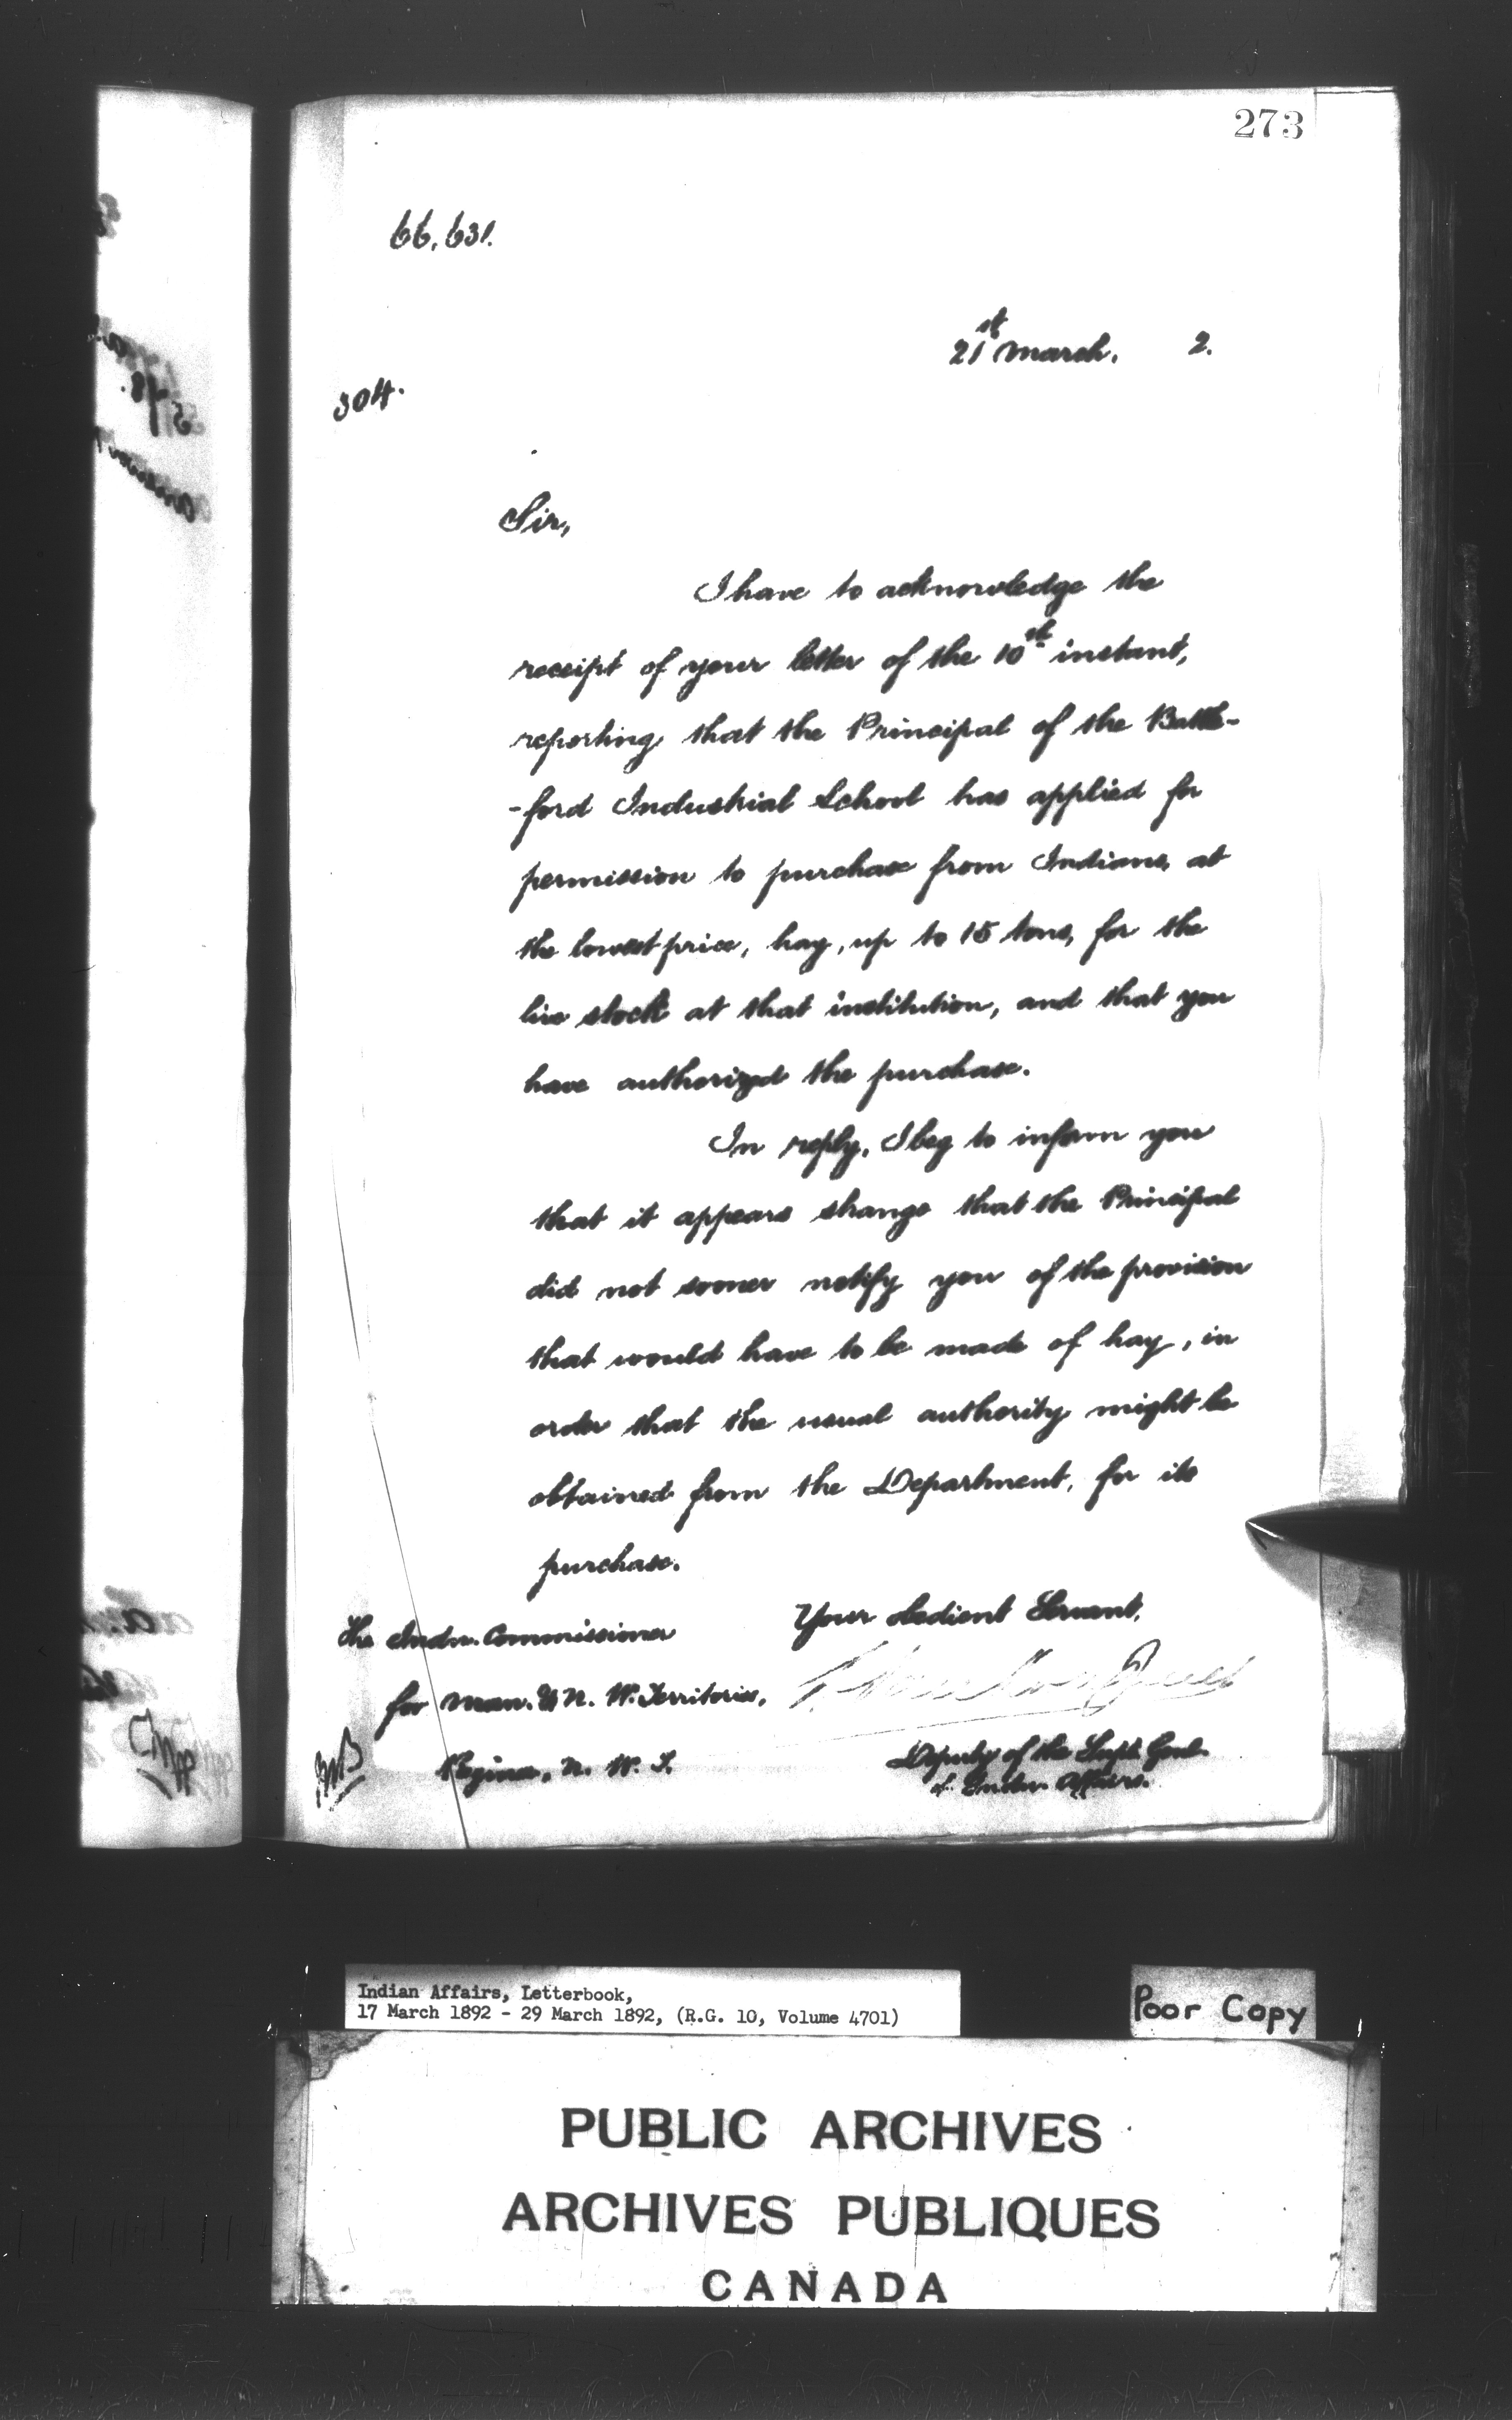 273
66,631.
21st March, 2.
304.
Sir,
I have to acknowledge the
receipt of your letter of the 10th instant,
reporting that the Principal of the Battle-
-ford Industrial School has applied for
permission to purchase from Indians, at
the lowest price, hay, up to 15 tons, for the
live stock at that institution, and that you
have authorized the purchase.
In reply, I beg to inform you
that it appears strange that the Principal
did not sooner notify you of the provision
that would have to be made of hay, in
order that the usual authority might be
obtained from the Department, for its
purchase.
Your obedient Servant,
The Indn. Commissioner
for Man. & N. W. Territories,
Regina, N. W. T.
Deputy of the Supt. Genl.
of Indn. Affairs.
Indian Affairs, Letterbook,
17 March 1892 - 29 March 1892, (R.G. 10, Volume 4701)
Poor Copy
PUBLIC ARCHIVES
ARCHIVES PUBLIQUES
CANADA